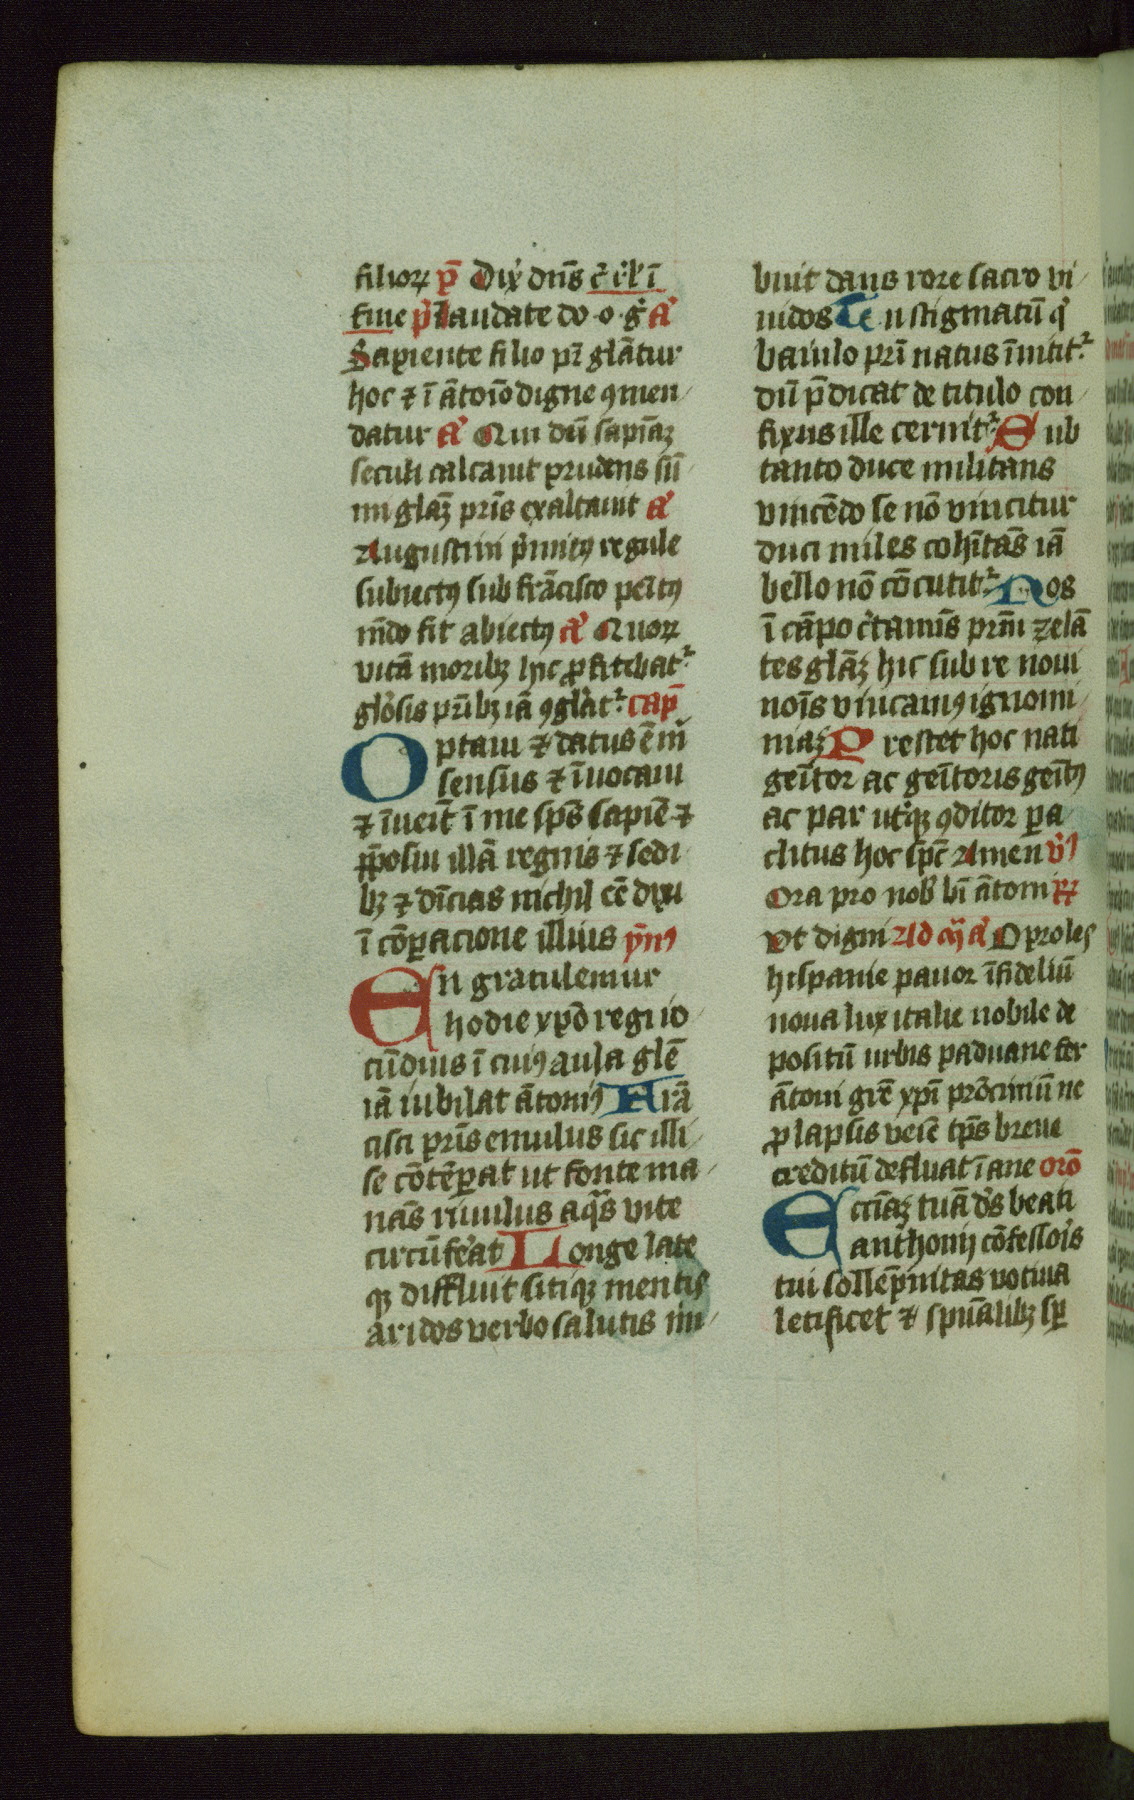 filioꝝ p̄ Dix̾ dn̄s c̄ ı̾l̾ ī
fine p̾ Laudate do · o · g̾ a̾
Sapiente filio pr̄ glātur
hoc ⁊ ī ātoīo digne ꝯmen
datur a̾ Qui dū sapīaꝫ
seculi calcauit prudens sū
mi glaꝫ pr̄is exaltauit a̾
Augustini p̾mitꝯ regule
subiectꝯ sub frācisco
mūdo fit abiectꝯ a̾ Quoꝝ
vitā moribꝫ hic ꝓfitebat᷑
glo̾sis pr̄ibꝫ iā ꝯglat᷑ cap̄
Optaui ⁊ datus ē m̄
sensus ⁊ īuocaui
⁊ īueīt ī me sp̄s sapiē ⁊
p̄posui illā regnis ⁊ sedi
bꝫ ⁊ dīcias nichil eē dixi
ī cōꝑacione illius ym̄ꝯ
En gratulemur
hodie xp̄o regi io
cūdius ī cuiꝯ aula glē
iā iubilat ātoniꝯ Frā
cisci pr̄is emulus sic illi
se cōtēꝑat ut fonte ma
nās riuulus aq̄s vite
circūfe̾at Longe late
qꝫ diffluit sitiqꝫ mentis
aridos verbo salutis im
buit dans rore sacro vi
uidos Cu stigmatū q̾
baiulo pr̄i natus īnitit᷑
dū p̄dicat de titulo con
fixus ille cernit᷑ Sub
tanto duce militans
vincēdo se nō vincitur
duci miles cohītās iā
bello nō cōcutit᷑ Nos
ī cāpo c̾tamīs pr̄m zelā
tes glāꝫ hic sub re noui
noīs vincamꝯ ignomi
niaꝫ Prestet hoc nati
geītor ac geītoris geītꝯ
ac par ut̾qꝫ ꝯditor ꝑa
clitus hoc sp̄c Amen v̾ꝯ
Ora pro nob̾ bī ātoni ꝶ
Vt digni Ad m̄ a̾ O proles
hispanie pauor īfideliū
noua lux italie nobile de
positū urbis paduane fer
ātoni grē xp̄i prōciniū ne
ꝓlapsis veīē tp̄s breue
creditū defluat īane orō
Eccīaꝫ tuā ds̾ beati
anthonij cōfesso̾is
tui sollēpnitas votiua
letificet ⁊ spūalibꝫ sꝑ